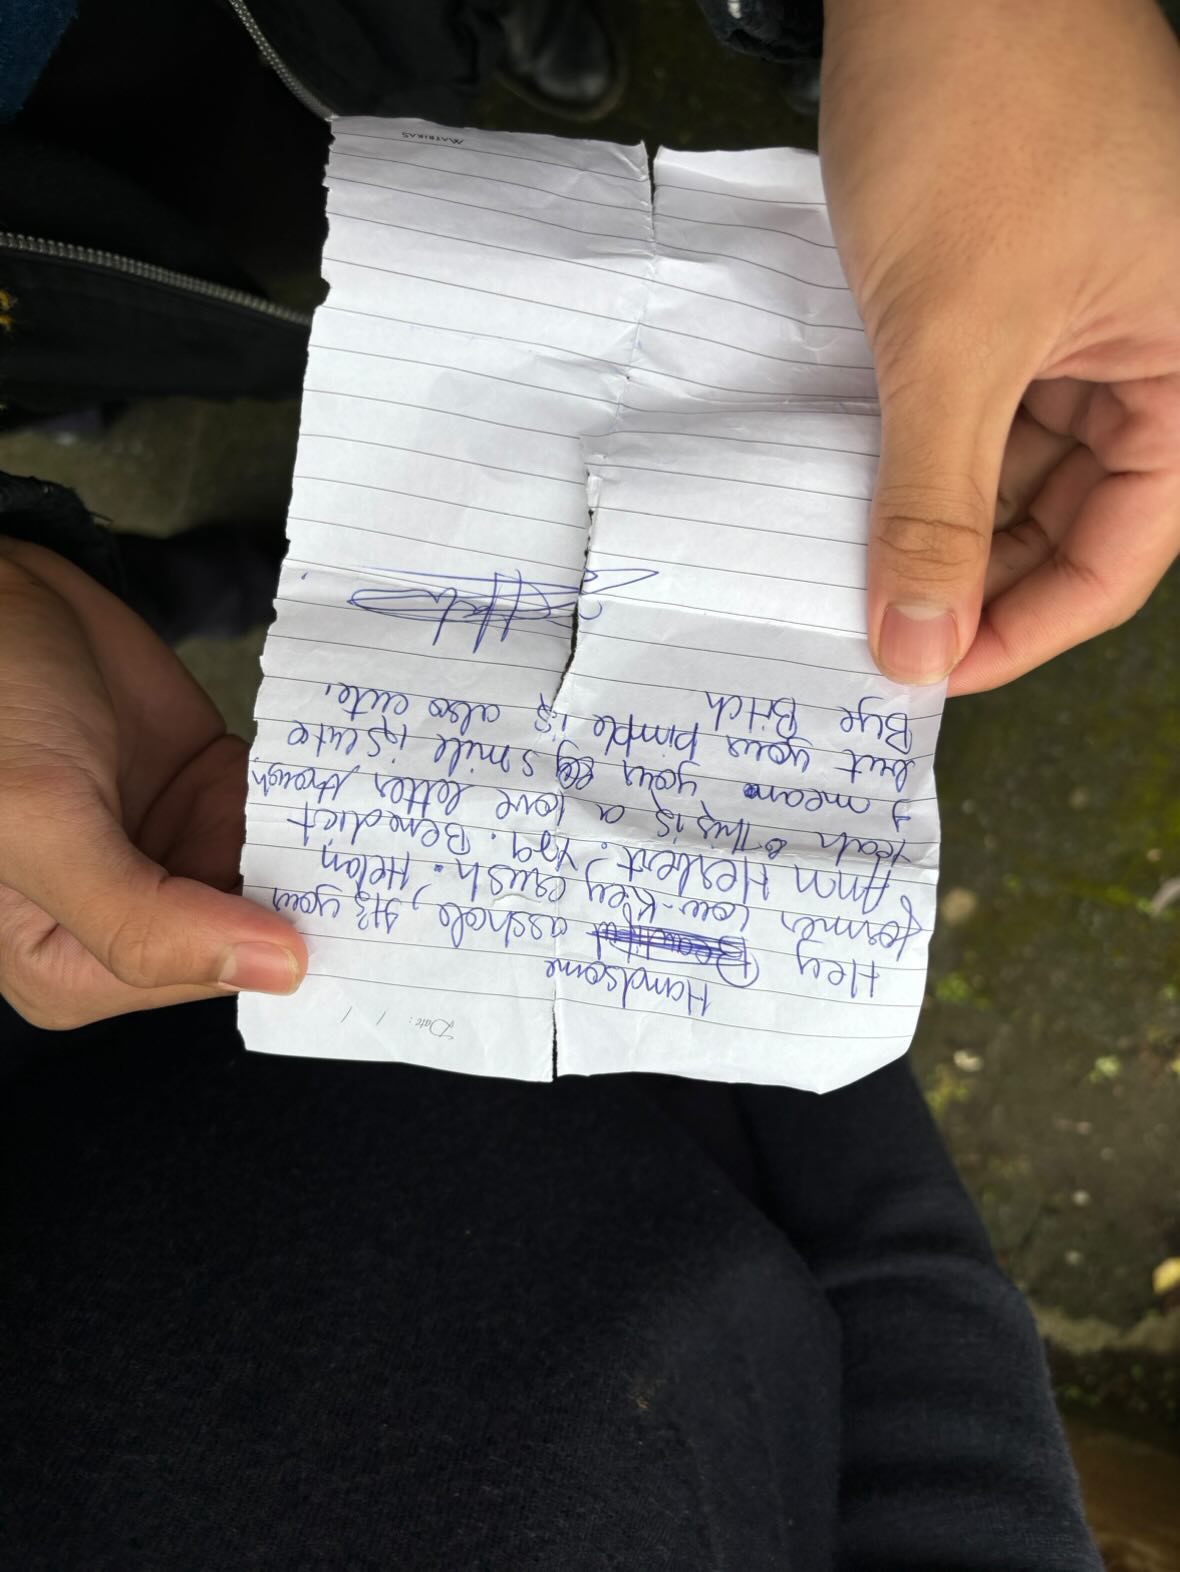 Date: / /
Handsome
Hey Beautiful asshole, It's your
former low-key crush. Helan
Ann Herbert. Benedict
Yeah This is a love letter though,
I mean your smile is cute
but your pimple is also cute.
Bye Bitch
MATRIKAS